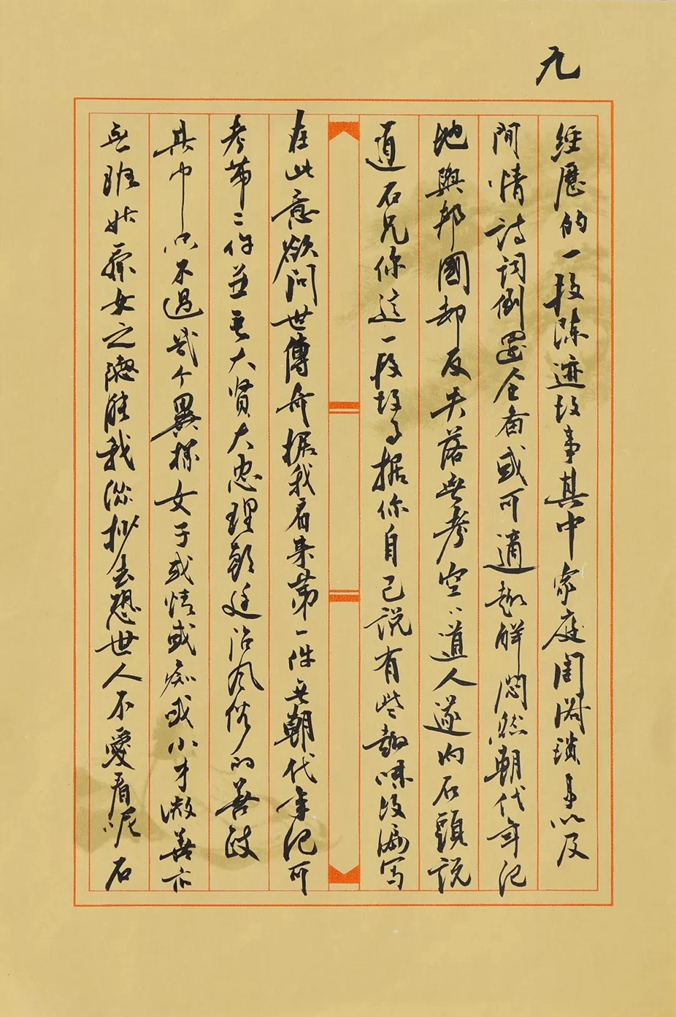 九
經歷的一段陈迹故事其中家庭闺阁琐事以及
闲情诗词倒還全备或可適趣解闷然朝代年纪
地舆邦國却反失落無考空空道人遂向石頭说
道石兄你這一段故事据你自己说有些趣味故编写
在此意欲问世傳奇据我看来第一件無朝代年纪可
考第二件並無大贤大忠理朝廷治风俗的善政
其中只不過幾个異樣女子或情或痴或小才微善亦
無班姑蔡女之德能我纵抄去恐世人不愛看呢石